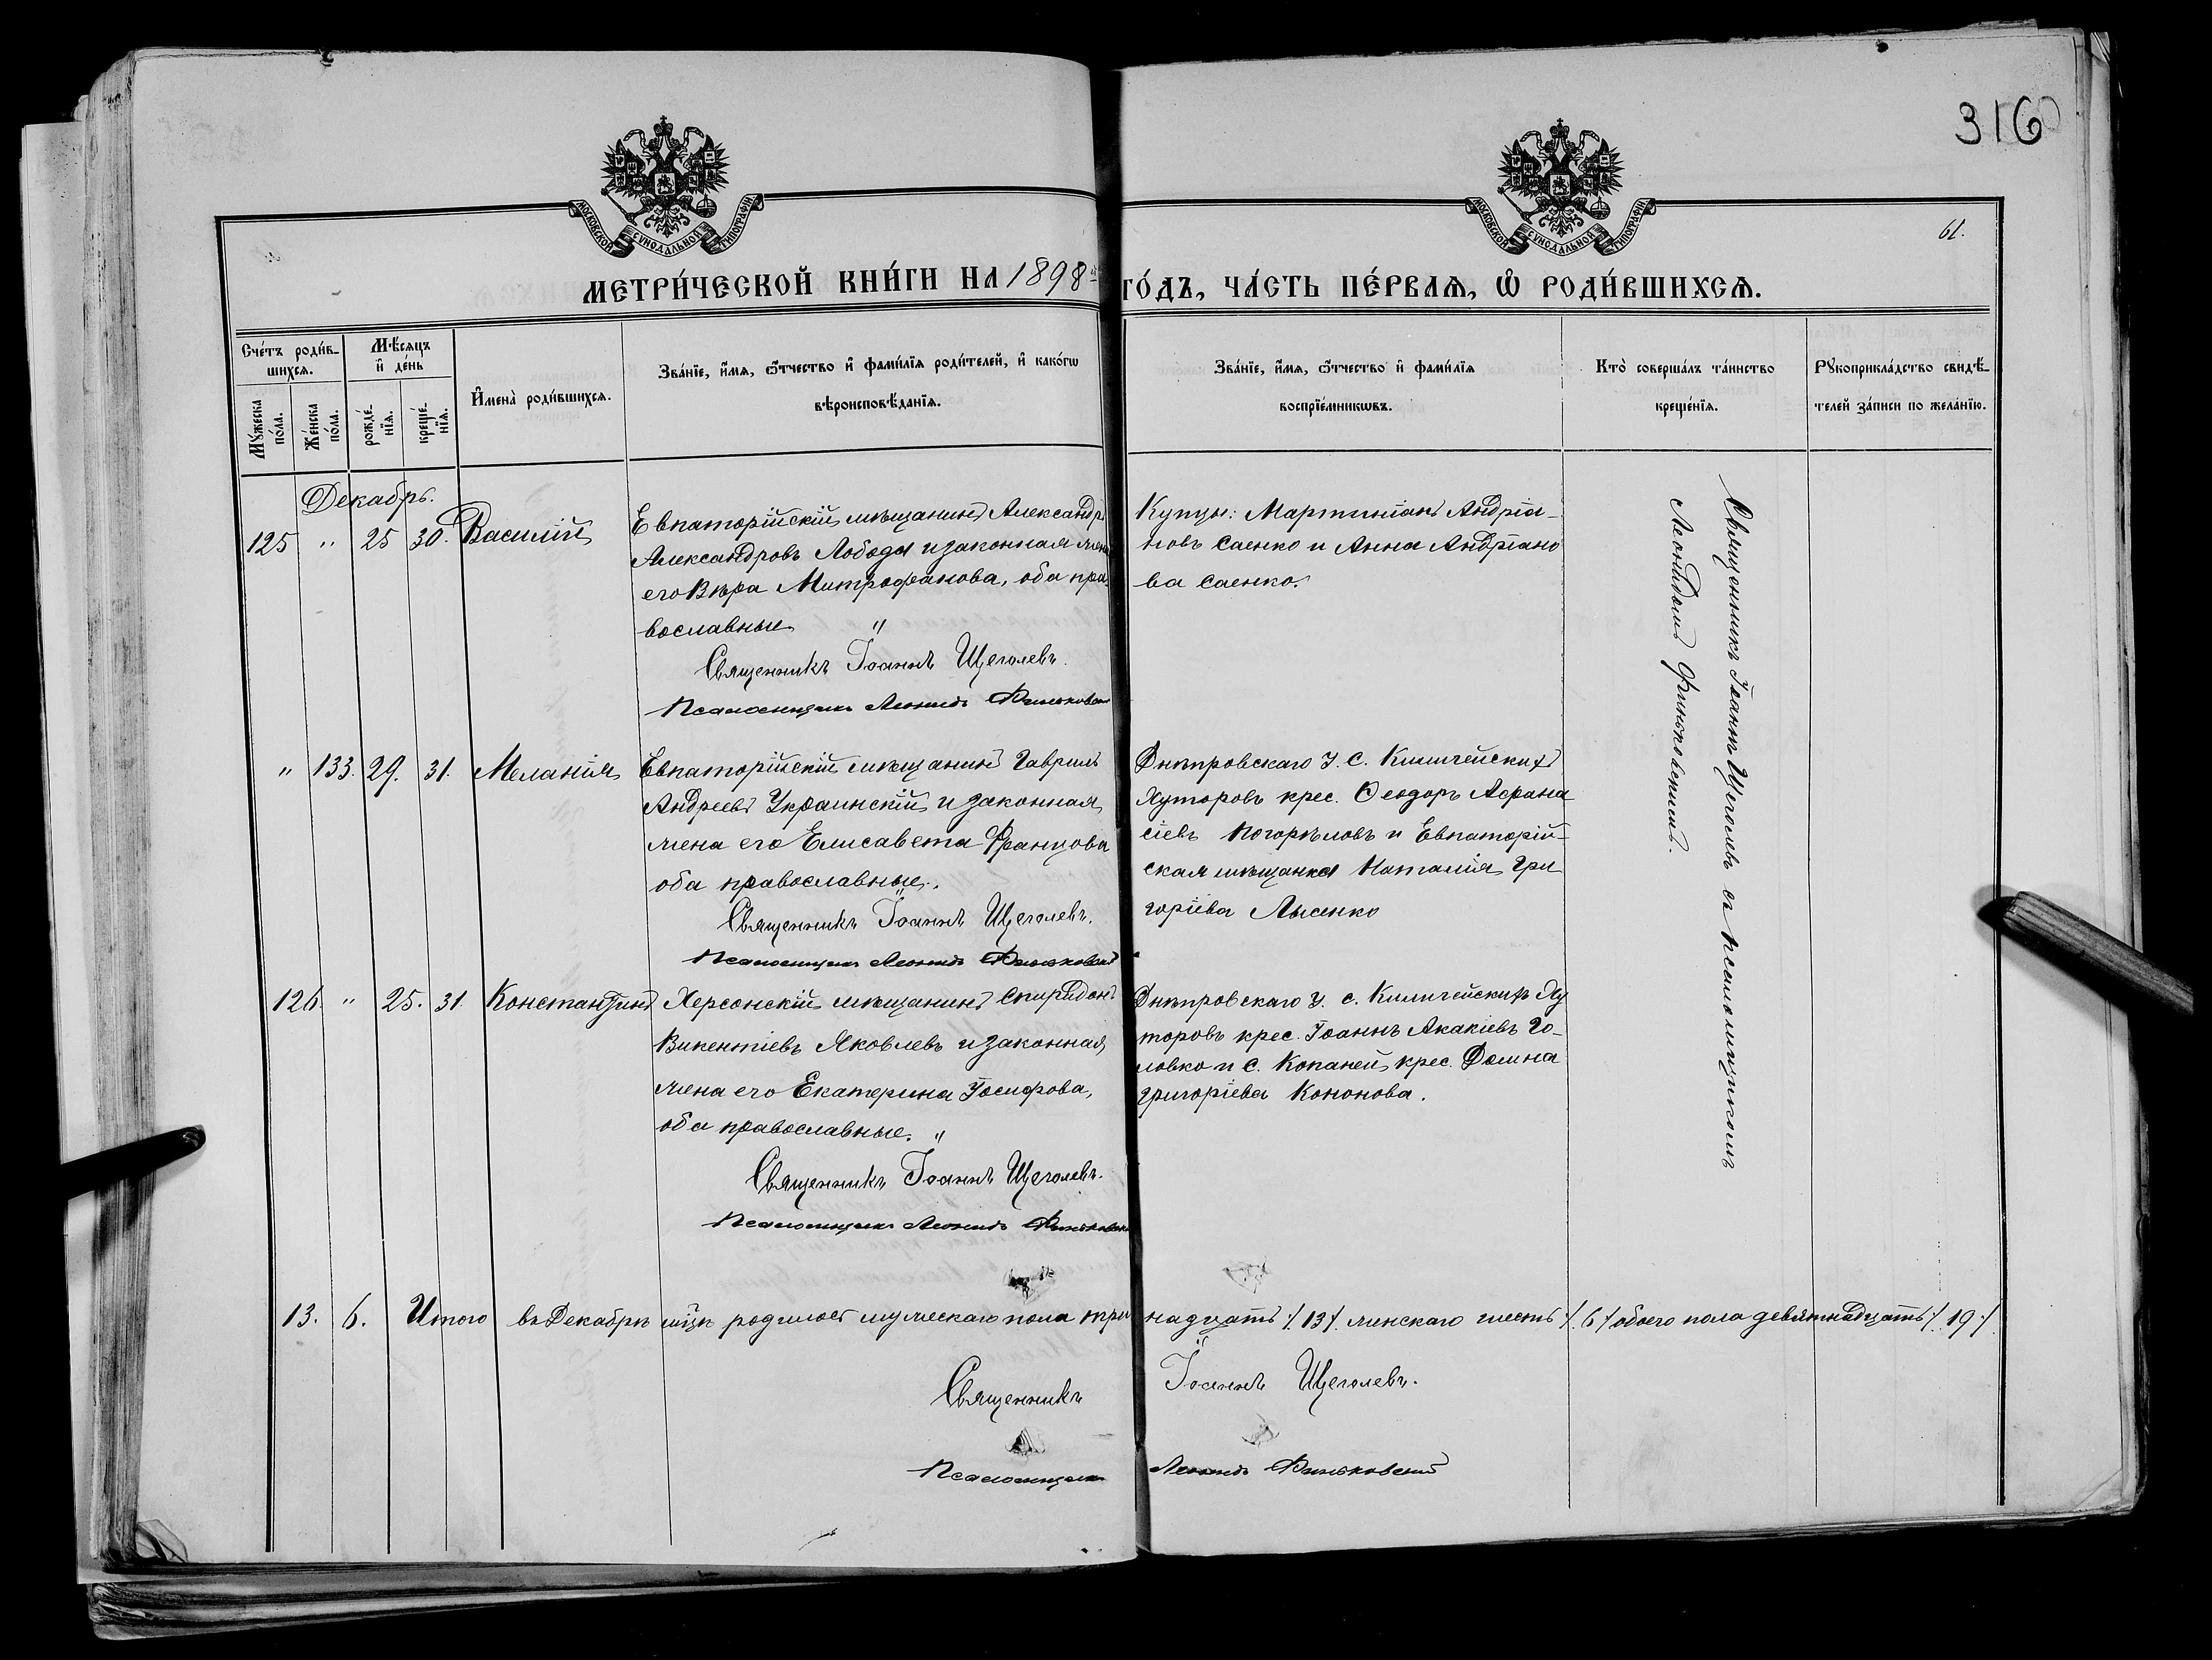 316
61.
МОСКОВСКОЙ СѴНОДАЛЬНОЙ ТИПОГРАФІИ
МОСКОВСКОЙ СѴНОДАЛЬНОЙ ТИПОГРАФІИ
МЕТРИ́ЧЕСКОЙ КНИ́ГИ НА 1898й ГО́ДЪ, ЧА́СТЬ ПЕ́РВАѦ, Ѡ҆ РОДИ́ВШИХСѦ.
Сче́тъ роди́в-
шихсѧ.
Мꙋ́жеска по́ла.
Же́нска по́ла.
Мѣ́сѧцъ
и҆ де́нь
рожде́-нїѧ.
креще́-нїѧ.
И҆мена̀ роди́вшихсѧ.
Зва́нїе, и҆́мѧ, ѻ҆́тчество и҆ фами́лїѧ роди́телей, и҆ како́гѡ
вѣроисповѣ́данїѧ.
Зва́нїе, и҆́мѧ, ѻ҆́тчество и҆ фами́лїѧ
воспрїе́мникѡвъ.
Кто̀ соверша́лъ та́инство
креще́нїѧ.
Рꙋкоприкла́дство свидѣ́-
телей за́писи по жела́нїю.
Декабрь.
125 " 25 30. Василій
Евпаторійскій мѣщанинъ Александръ
Александровъ Лобода и законная жена
его Вѣра Митрофанова, оба пра-
вославные "
Священникъ Іоаннъ Щеголевъ.
Псаломщикъ Леонидъ Финьковскій
Купцы: Мартиніанъ Андріа-
новъ Саенко и Анна Андріано
ва Саенко.
Священникъ Іоаннъ Щеголевъ съ псаломщикомъ
Леонидомъ Финьковскимъ.
" 133. 29. 31. Меланія
Евпаторійскій мѣщанинъ Гавриилъ
Андреевъ Украинскій и законная
жена его Елисавета Францова
оба православные.
Священникъ Іоаннъ Щеголевъ.
Псаломщикъ Леонидъ Финьковскій
Днѣпровскаго у. с. Килигейскихъ
Хуторовъ крес. Ѳеодоръ Афана
сіевъ Погорѣловъ и Евпаторій-
ская мѣщанка Наталія Гри
горіева Лысенко
126 " 25. 31. Константинъ
Херсонскій мѣщанинъ Спиридонъ
Викентіевъ Яковлевъ и законная
жена его Екатерина Іосифова,
оба православные. "
Священникъ Іоаннъ Щеголевъ.
Псаломщикъ Леонидъ Финьковскій
Днѣпровскаго у. с. Килигейскихъ Ху
торовъ крес. Іоаннъ Акакіевъ Го-
ловко и с. Копаней крес. Домна
Григоріева Кононова.
13. 6. Итого въ Декабрѣ мцѣ родилось мужескаго пола три надцать /.13/. женскаго шесть /.6/ обоего пола девятнадцать /.19./
Священникъ Іоаннъ Щеголевъ.
Псаломщикъ Леонидъ Финьковскій